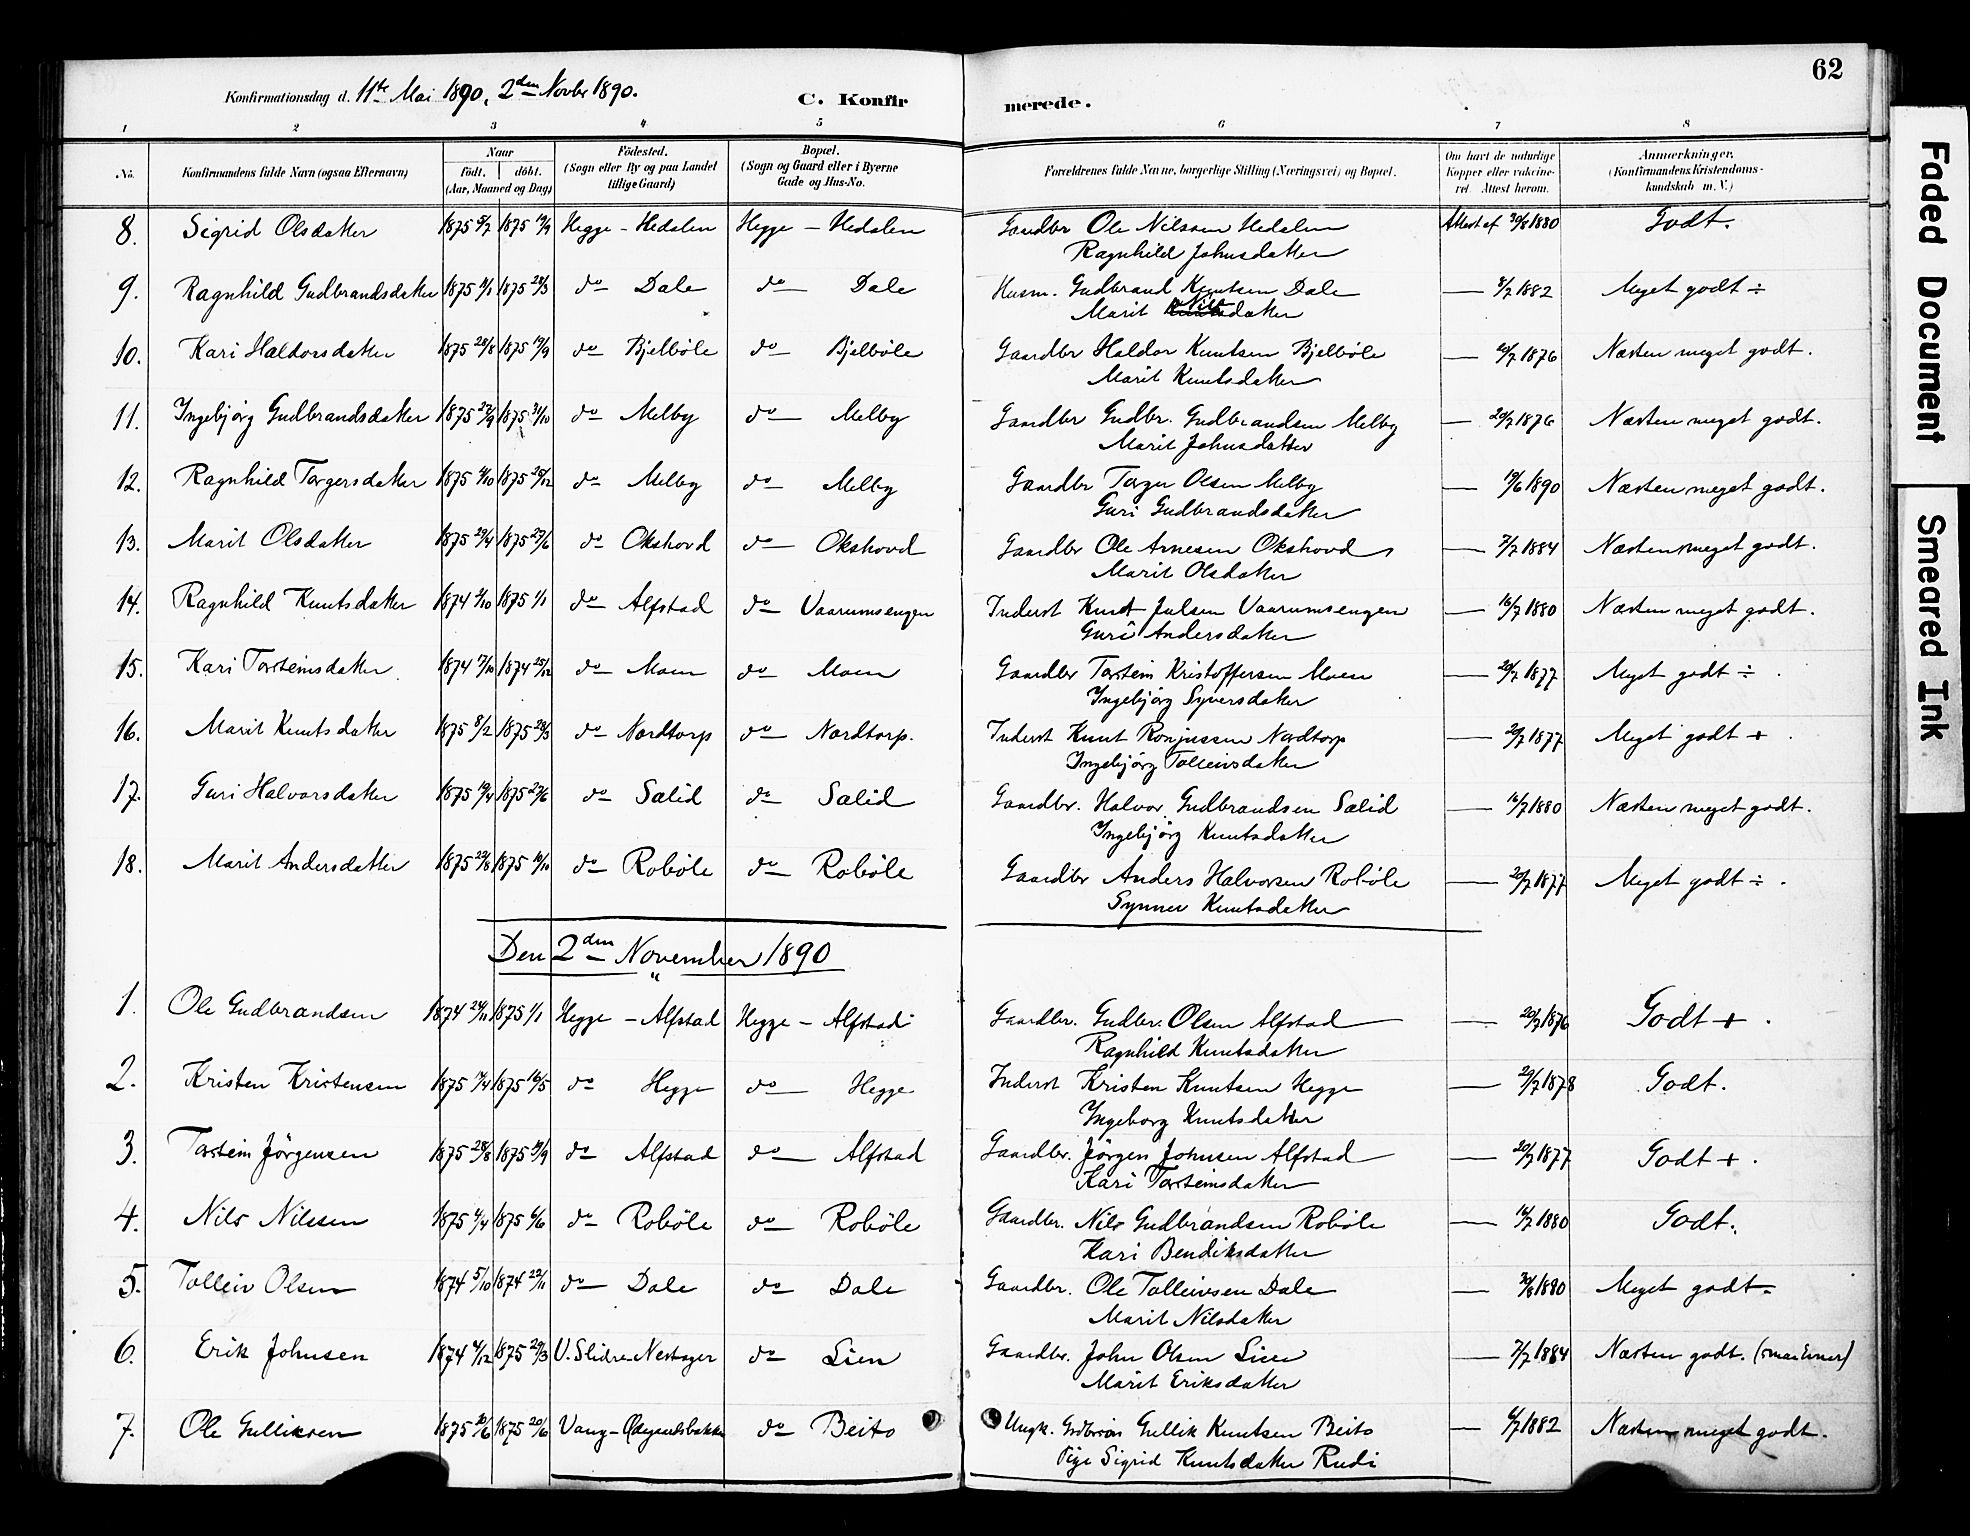 62
Konfirmationsdag d. 11te Mai 1890, 2den Novbr 1890.
C. Konfir merede.
1 2 3 4 5 6 7 8
No. Konfirmandens fulde Navn (ogsaa Efternavn) Naar født. døbt. (Aar, Maaned og Dag) Födested. (Sogn eller By og paa Landet tillige Gaard) Bopæl. (Sogn og Gaard eller i Byerne Gade og Hus-No. Forældrenes fulde Navne, borgerlige Stilling (Næringsvei) og Bopæl. Om havt de naturlige Kopper eller vaccineret. Attest herom. Anmærkninger. (Konfirmandens Kristendomskundskab m. V.)
8. Sigrid Olsdatter 1875 1875 Hegge - Hedalen Hegge - Hedalen Gaardbr Ole Nilssen Hedalen Attest af 30/8 1880 Godt.
Ragnhild Johnsdatter
9. Ragnhild Gudbrandsdatter 1875 1875 28/3 do Dale do Dale Husm. Gudbrand Knutsen Dale — 1882 Meget godt ÷
Marit Nilsdatter
10. Kari Haldorsdatter 1875 28/8 1875 19/9 do Bjelbøle do Bjelbøle Gaardbr Haldor Knutsen Bjelbøle — 20/7 1876 Næsten meget godt.
Marit Knutsdatter
11. Ingebjørg Gudbrandsdatter 1875 27/9 1875 31/10 do Melby do Melby Gaardbr Gudbr. Gudbrandsen Melby — 20/7 1876 Næsten meget godt.
Marit Johnsdatter
12. Ragnhild Torgersdatter 1875 1875 26/12 do Melby do Melby Gaardbr Torger Olsen Melby — 19/6 1890 Næsten meget godt.
Guri Gudbrandsdatter
13. Marit Olsdatter 1875 29/4 1875 27/6 do Okshovd do Okshovd Gaardbr Ole Arnesen Okshovd — 7/7 1884 Næsten meget godt.
Marit Olsdatter
14. Ragnhild Knutsdatter 1874 1875 1/1 do Alfstad do Vaarumsengen Inderst Knut Julsen Vaarumsengen — 16/7 1880 Næsten meget godt.
Guri Andersdatter
15. Kari Torsteinsdatter 1874 17/10 1874 25/12 do Moen do Moen Gaardbr Torstein Kristoffersen Moen — 20/7 1877 Meget godt ÷ .
Ingebjørg Syversdatter
16. Marit Knutsdatter 1875 8/2 1875 28/3 do Nordtorp do Nordtorp. Inderst Knut Nordtorp — 20/7 1877 Meget godt + .
Ingebjørg Tolleivsdatter
17. Guri Halvorsdatter 1875 19/4 1875 27/6 do Sælid do Sælid Gaardbr. Halvor Gudbrandsen Sælid — 16/7 1880 Næsten meget godt.
Ingebjørg Knutsdatter
18. Marit Andersdatter 1875 29/8 1875 10/10 do Robøle do Robøle Gaardbr Anders Halvorsen Robøle — 20/7 1877 Meget godt ÷ .
Synnev Knutsdatter
Den 2den November 1890
1. Ole Gudbrandsen 1874 24/11 1875 1/1 Hegge - Alfstad Hegge - Alfstad Gaardbr. Gudbr. Olsen Alfstad — 20/7 1876 Godt + .
Ragnhild Knutsdatter
2. Kristen Kristensen 1875 1875 16/5 do Hegge do Hegge Inderst Kristen Knutsen Hegge — 29/7 1878 Godt.
Ingeborg Knutsdatter
3. Torstein Jörgensen 1875 28/8 1875 19/9 do Alfstad do Alfstad Gaardbr. Jörgen Johnsen Alfstad — 20/7 1877 Godt + .
Kari Torsteinsdatter
4. Nils Nilssen 1875 1875 6/6 do Robøle do Robøle Gaardbr. Nils Gudbrandsen Robøle — 16/7 1880 Godt.
Kari Bendiksdatter
5. Tolleiv Olsen 1874 5/10 1874 22/11 do Dale do Dale Gaardbr. Ole Tolleivsen Dale — 30/8 1880 Meget godt ÷
Marit Nilsdatter
6. Erik Johnsen 1874 1875 29/3 V. Slidre - Nestager do Lien Gaardbr. John Olsen Lien — 7/7 1884 Næsten godt. (smaa Evner)
Marit Eriksdatter
7. Ole Gulliksen 1875 10/6 1875 20/6 Vang - do Beito Ungk. Gullik Knutsen Beito — 1882 Næsten meget godt.
Pige Sigrid Knutsdatter Rudi
Faded Document
Smeared Ink